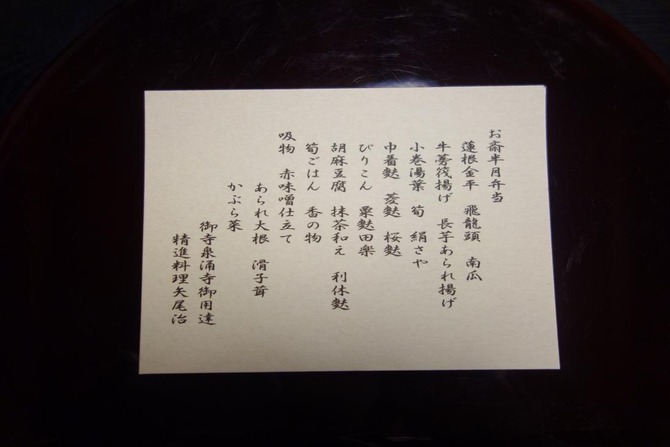 お斎半月弁当
蓮根金平 飛龍頭 南瓜
牛蒡筏揚げ 長芋あられ揚げ
小巻湯葉 筍 絹さや
巾着麩 菱麩 桜麩
ぴりこん 粟麩田楽
胡麻豆腐 抹茶和え 利休麩
筍ごはん 香の物
吸物 赤味噌仕立て
あられ大根 滑子茸
かぶら菜
御寺泉涌寺御用達
精進料理矢尾治